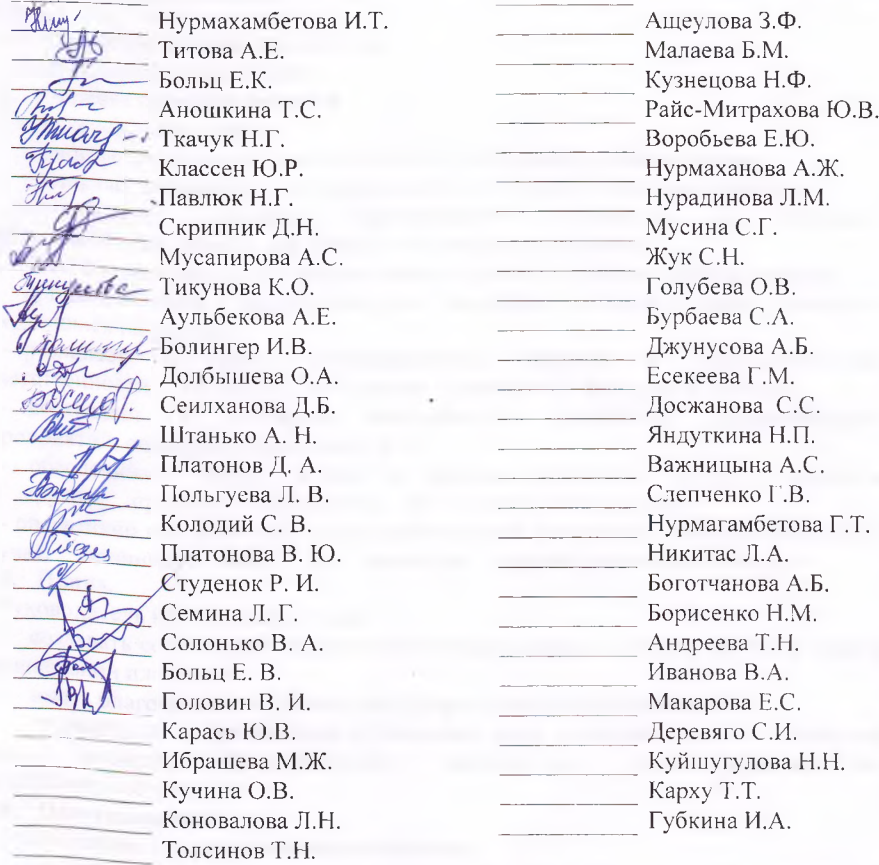 Нурмахамбетова И.Т.
Титова А.Е.
Больц Е.К.
Аношкина Т.С.
Ткачук Н.Г.
Классен Ю.Р.
Павлюк Н.Г.
Скрипник Д.Н.
Мусапирова А.С.
Тикунова К.О.
Аульбекова А.Е.
Болингер И.В.
Долбышева О.А.
Сеилханова Д.Б.
Штанько А. Н.
Платонов Д. А.
Польгуева Л. В.
Колодий С. В.
Платонова В. Ю.
Студенок Р. И.
Семина Л. Г.
Солонько В. А.
Больц Е. В.
Головин В. И.
Карась Ю.В.
Ибрашева М.Ж.
Кучина О.В.
Коновалова Л.Н.
Толсинов Т.Н.
Ащеулова З.Ф.
Малаева Б.М.
Кузнецова Н.Ф.
Райс-Митрахова Ю.В.
Воробьева Е.Ю.
Нурмаханова А.Ж.
Нурадинова Л.М.
Мусина С.Г.
Жук С.Н.
Голубева О.В.
Бурбаева С.А.
Джунусова А.Б.
Есекеева Г.М.
Досжанова С.С.
Яндуткина Н.П.
Важницына А.С.
Слепченко Г.В.
Нурмагамбетова Г.Т.
Никитас Л.А.
Боготчанова А.Б.
Борисенко Н.М.
Андреева Т.Н.
Иванова В.А.
Макарова Е.С.
Деревяго С.И.
Куйшугулова Н.Н.
Карху Т.Т.
Губкина И.А.